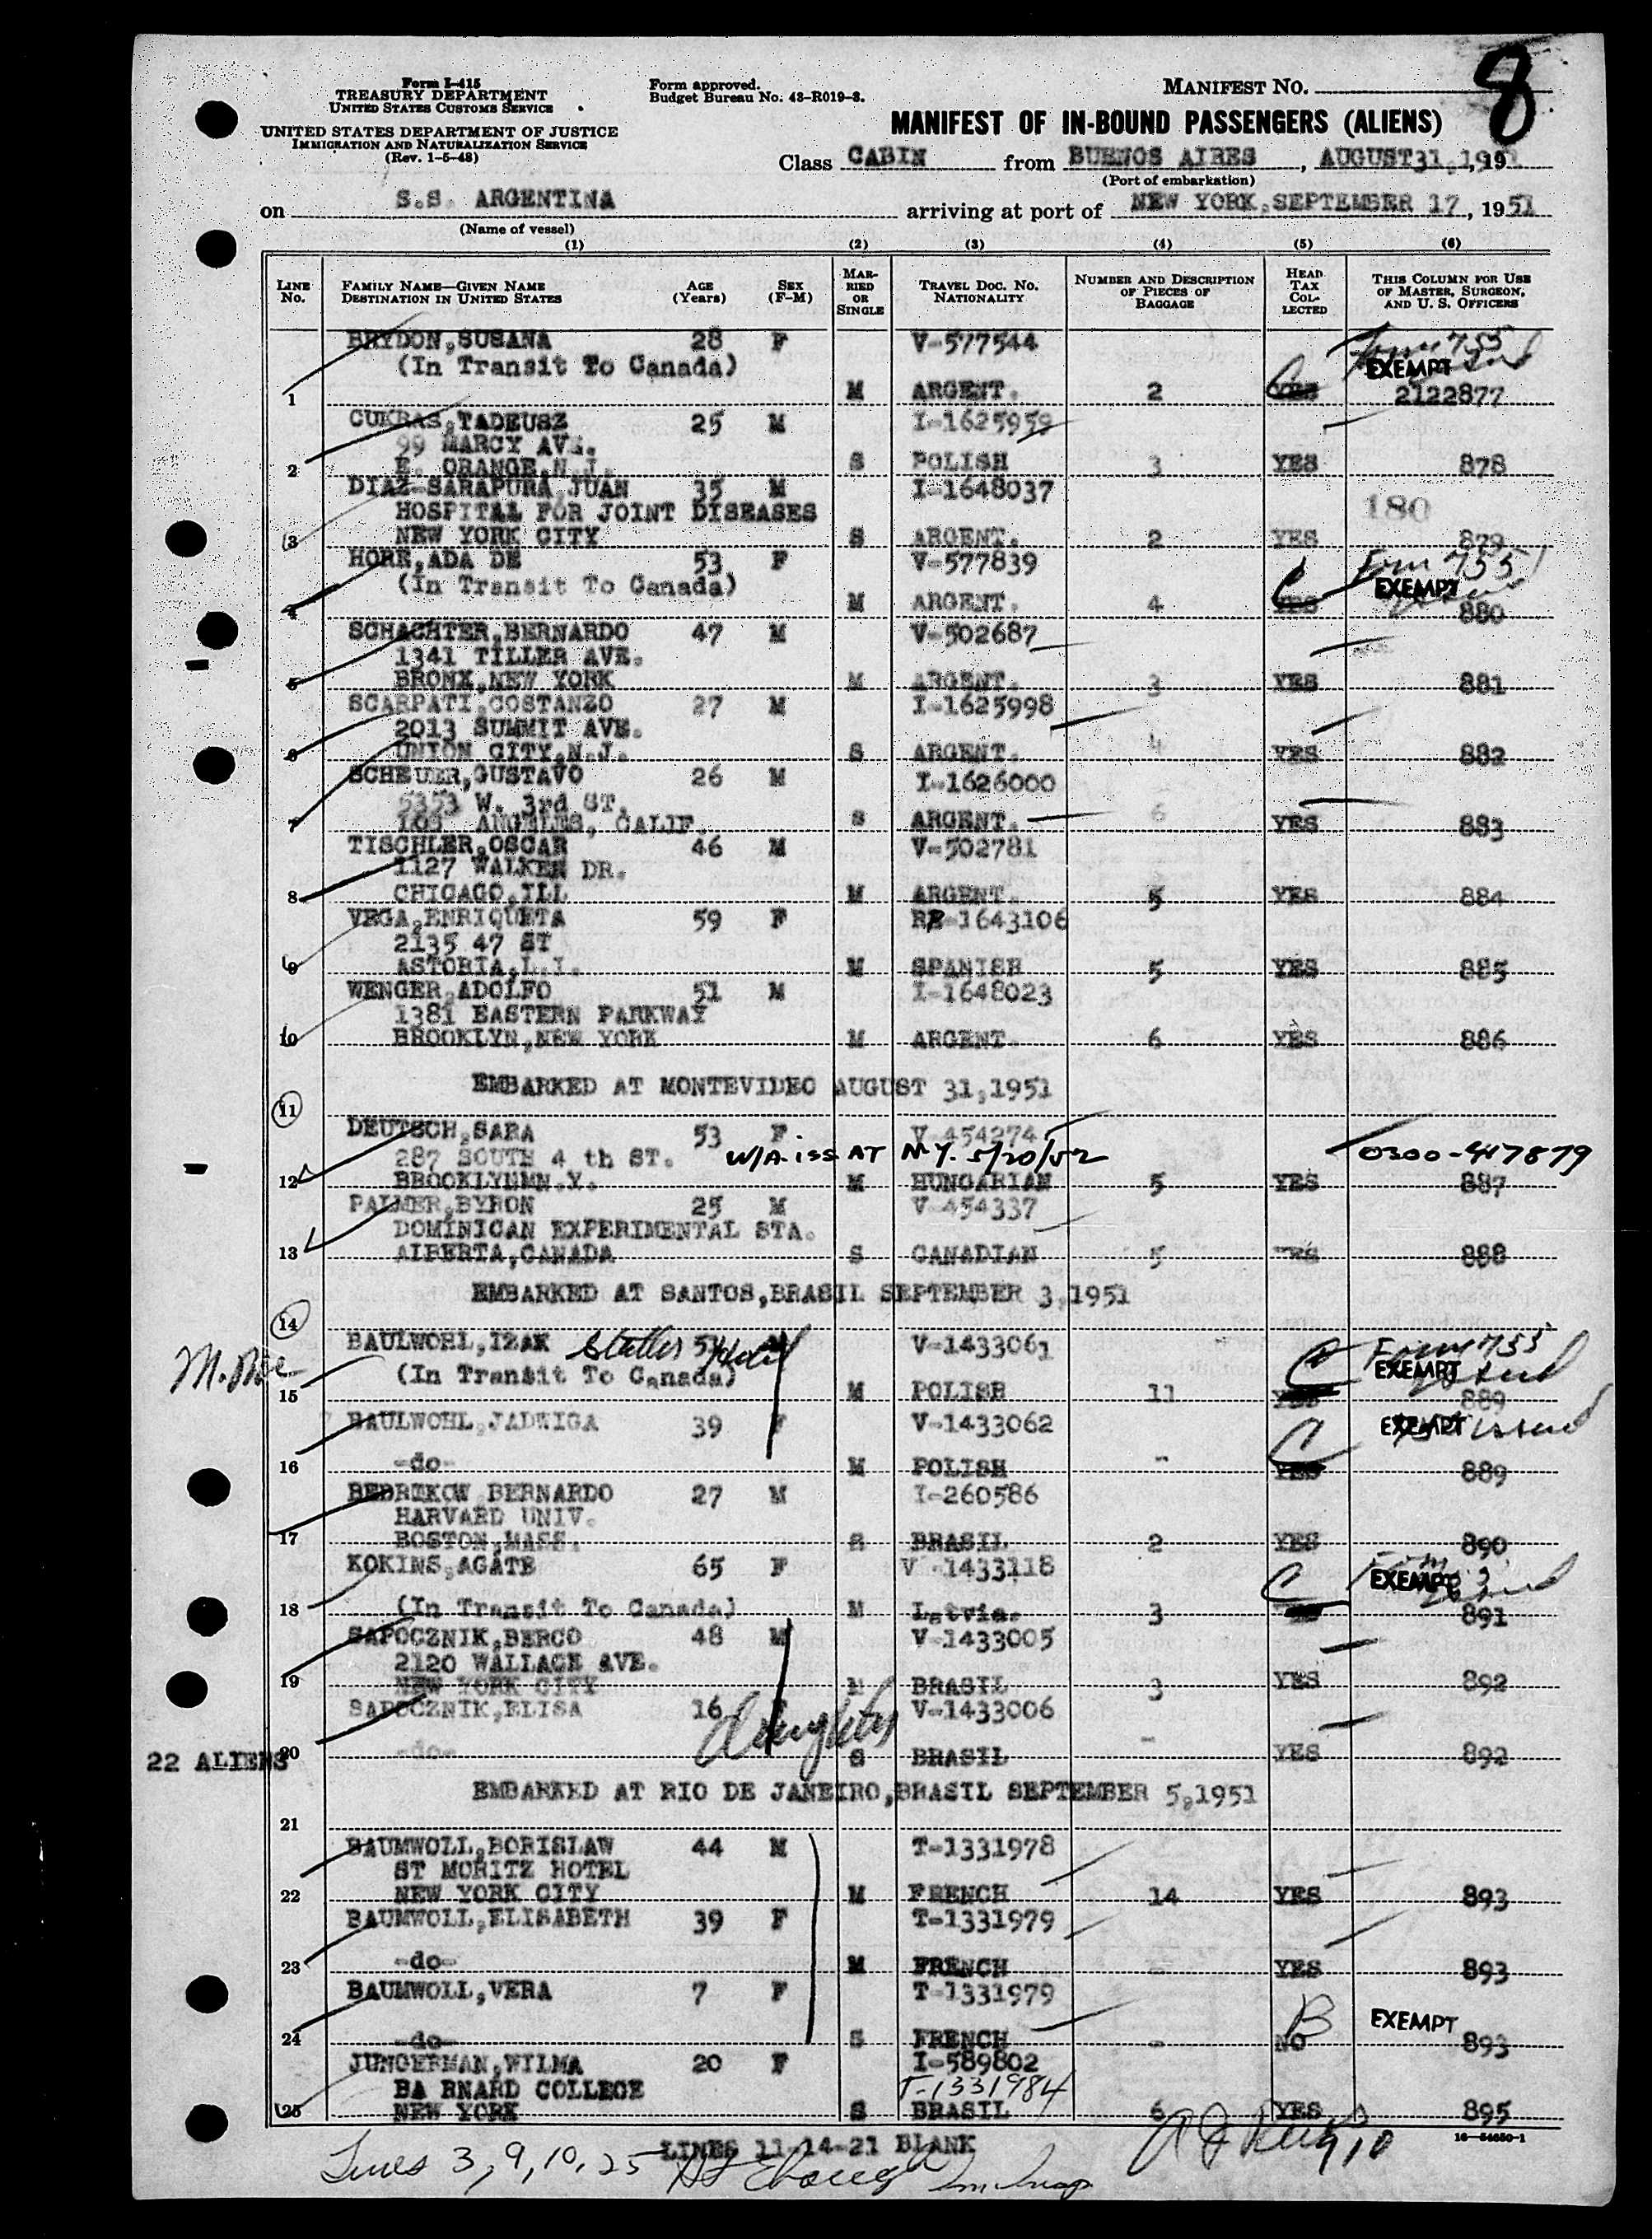 8
Form I-415
TREASURY DEPARTMENT
UNITED STATES CUSTOMS SERVICE
UNITED STATES DEPARTMENT OF JUSTICE
IMMIGRATION AND NATURALIZATION SERVICE
(Rev. 1-5-48)
Form approved.
Budget Bureau No. 43-R019-3.
MANIFEST NO.
MANIFEST OF IN-BOUND PASSENGERS (ALIENS)
Class CABIN from BUENOS AIRES, AUGUST 31, 1951
(Port of embarkation)
on S.S. ARGENTINA arriving at port of NEW YORK, SEPTEMBER 17, 1951
(Name of vessel)
(1) (2) (3) (4) (5) (6)
LINE No. FAMILY NAME—GIVEN NAME DESTINATION IN UNITED STATES AGE (Years) SEX (F-M) MARRIED OR SINGLE TRAVEL DOC. NO. NATIONALITY NUMBER AND DESCRIPTION OF PIECES OF BAGGAGE HEAD TAX COLLECTED THIS COLUMN FOR USE OF MASTER, SURGEON, AND U. S. OFFICERS
BRYDON, SUSANA 28 F V-577544 Form 755
(In Transit To Canada) EXEMPT
1 M ARGENT. 2 YES 2122877
CUKRAS, TADEUSZ 25 M I-1625959
99 MARCY AVE.
2 E. ORANGE, N.J. S POLISH 3 YES 878
DIAZ-SARAPURA, JUAN 35 M I-1648037
HOSPITAL FOR JOINT DISEASES 180
3 NEW YORK CITY S ARGENT. 2 YES 879
HORE, ADA DE 53 F V-577839 Form 755
(In Transit To Canada) EXEMPT
4 M ARGENT. 4 YES 880
SCHACHTER, BERNARDO 47 M V-502687
1341 TILLER AVE.
5 BRONX, NEW YORK M ARGENT. 3 YES 881
SCARPATI, COSTANZO 27 M I-1625998
2013 SUMMIT AVE.
6 UNION CITY, N.J. S ARGENT. 4 YES 882
SCHEUER, GUSTAVO 26 M I-1626000
5353 W. 3rd ST.
7 LOS ANGELES, CALIF. S ARGENT. 6 YES 883
TISCHLER, OSCAR 46 M V-502781
1127 WALKEN DR.
8 CHICAGO, ILL M ARGENT. 5 YES 884
VEGA, ENRIQUETA 59 F RP-1643106
2135 47 ST
9 ASTORIA, L.I. M SPANISH 5 YES 885
WENGER, ADOLFO 51 M I-1648023
1381 EASTERN PARKWAY
10 BROOKLYN, NEW YORK M ARGENT. 6 YES 886
EMBARKED AT MONTEVIDEO AUGUST 31, 1951
11
DEUTSCH, SARA 53 F V-454274
287 SOUTH 4 th ST. W/A iss AT N.Y. 5/20/52 0300-417879
12 BROOKLYNMN.Y. M HUNGARIAN 5 YES 887
PALMER, BYRON 25 M V-454337
DOMINICAN EXPERIMENTAL STA.
13 ALBERTA, CANADA S CANADIAN 5 YES 888
EMBARKED AT SANTOS, BRASIL SEPTEMBER 3, 1951
14
BAULWOHL, IZAK Statler Hotel M V-1433061 Form 755
(In Transit To Canada) EXEMPT
15 M POLISH 11 YES 889
BAULWOHL, JADWIGA 39 F V-1433062 EXEMPT issued
16 -do- M POLISH - YES 889
BEDRIKOW BERNARDO 27 M I-260586
HARVARD UNIV.
17 BOSTON, MASS. S BRASIL 2 YES 890
KOKINS, AGATE 65 F V -1433118
EXEMPT
18 (In Transit To Canada) M Latvia. 3 891
SAPOCZNIK, BERCO 48 M V-1433005
2120 WALLACE AVE.
19 NEW YORK CITY M BRASIL 3 YES 892
SAPOCZNIK, ELISA 16 F V-1433006
daughter
22 ALIENS
20 -do- S BRASIL - YES 892
EMBARKED AT RIO DE JANEIRO, BRASIL SEPTEMBER 5, 1951
21
BAUMWOLL, BORISLAW 44 M T-1331978
ST MORITZ HOTEL
22 NEW YORK CITY M FRENCH 14 YES 893
BAUMWOLL, ELISABETH 39 F T-1331979
23 -do- M FRENCH - YES 893
BAUMWOLL, VERA 7 F T-1331979
B EXEMPT
24 -do- S FRENCH - NO 893
JUNGERMAN, WILMA 20 F I-589802
BA RNARD COLLEGE T-1331984
25 NEW YORK S BRASIL 6 YES 895
LINES 11-14-21 BLANK
16—54650-1
Lines 3, 9, 10, 25